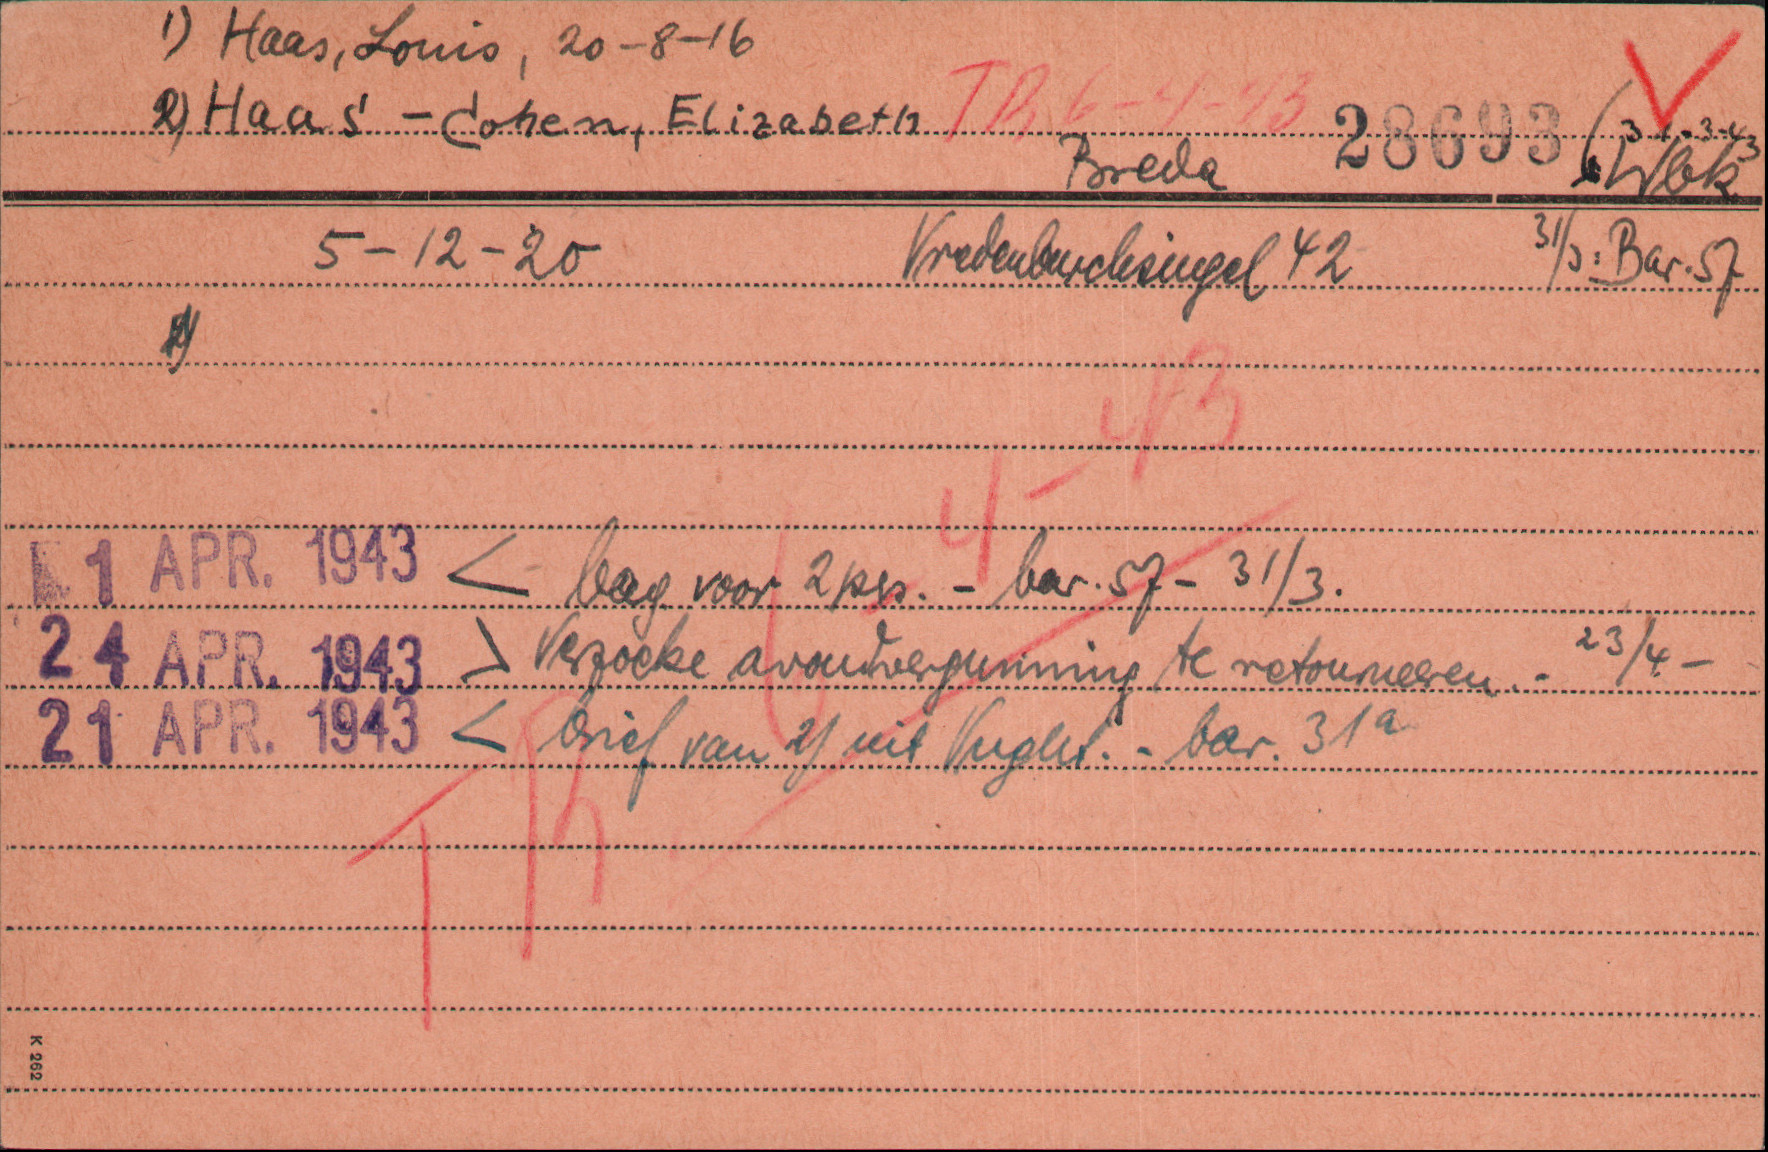 1) Haas, Louis, 20-8-16
2) Haas-Cohen, Elizabeth TR, 6-4-43
Breda 28693 (31-3-43
Wbk
5-12-20 Vredenburchsingel 42 31/3: Bar. 57
6-4-43
1 APR. 1943 < bag voor 2 psn. - bar. 57 - 31/3.
24 APR. 1943 > Verzoeke avondvergunning te retourneeren. - 23/4 -
21 APR. 1943 < Brief van 2) uit Vught. - bar. 31a
TR
K 262